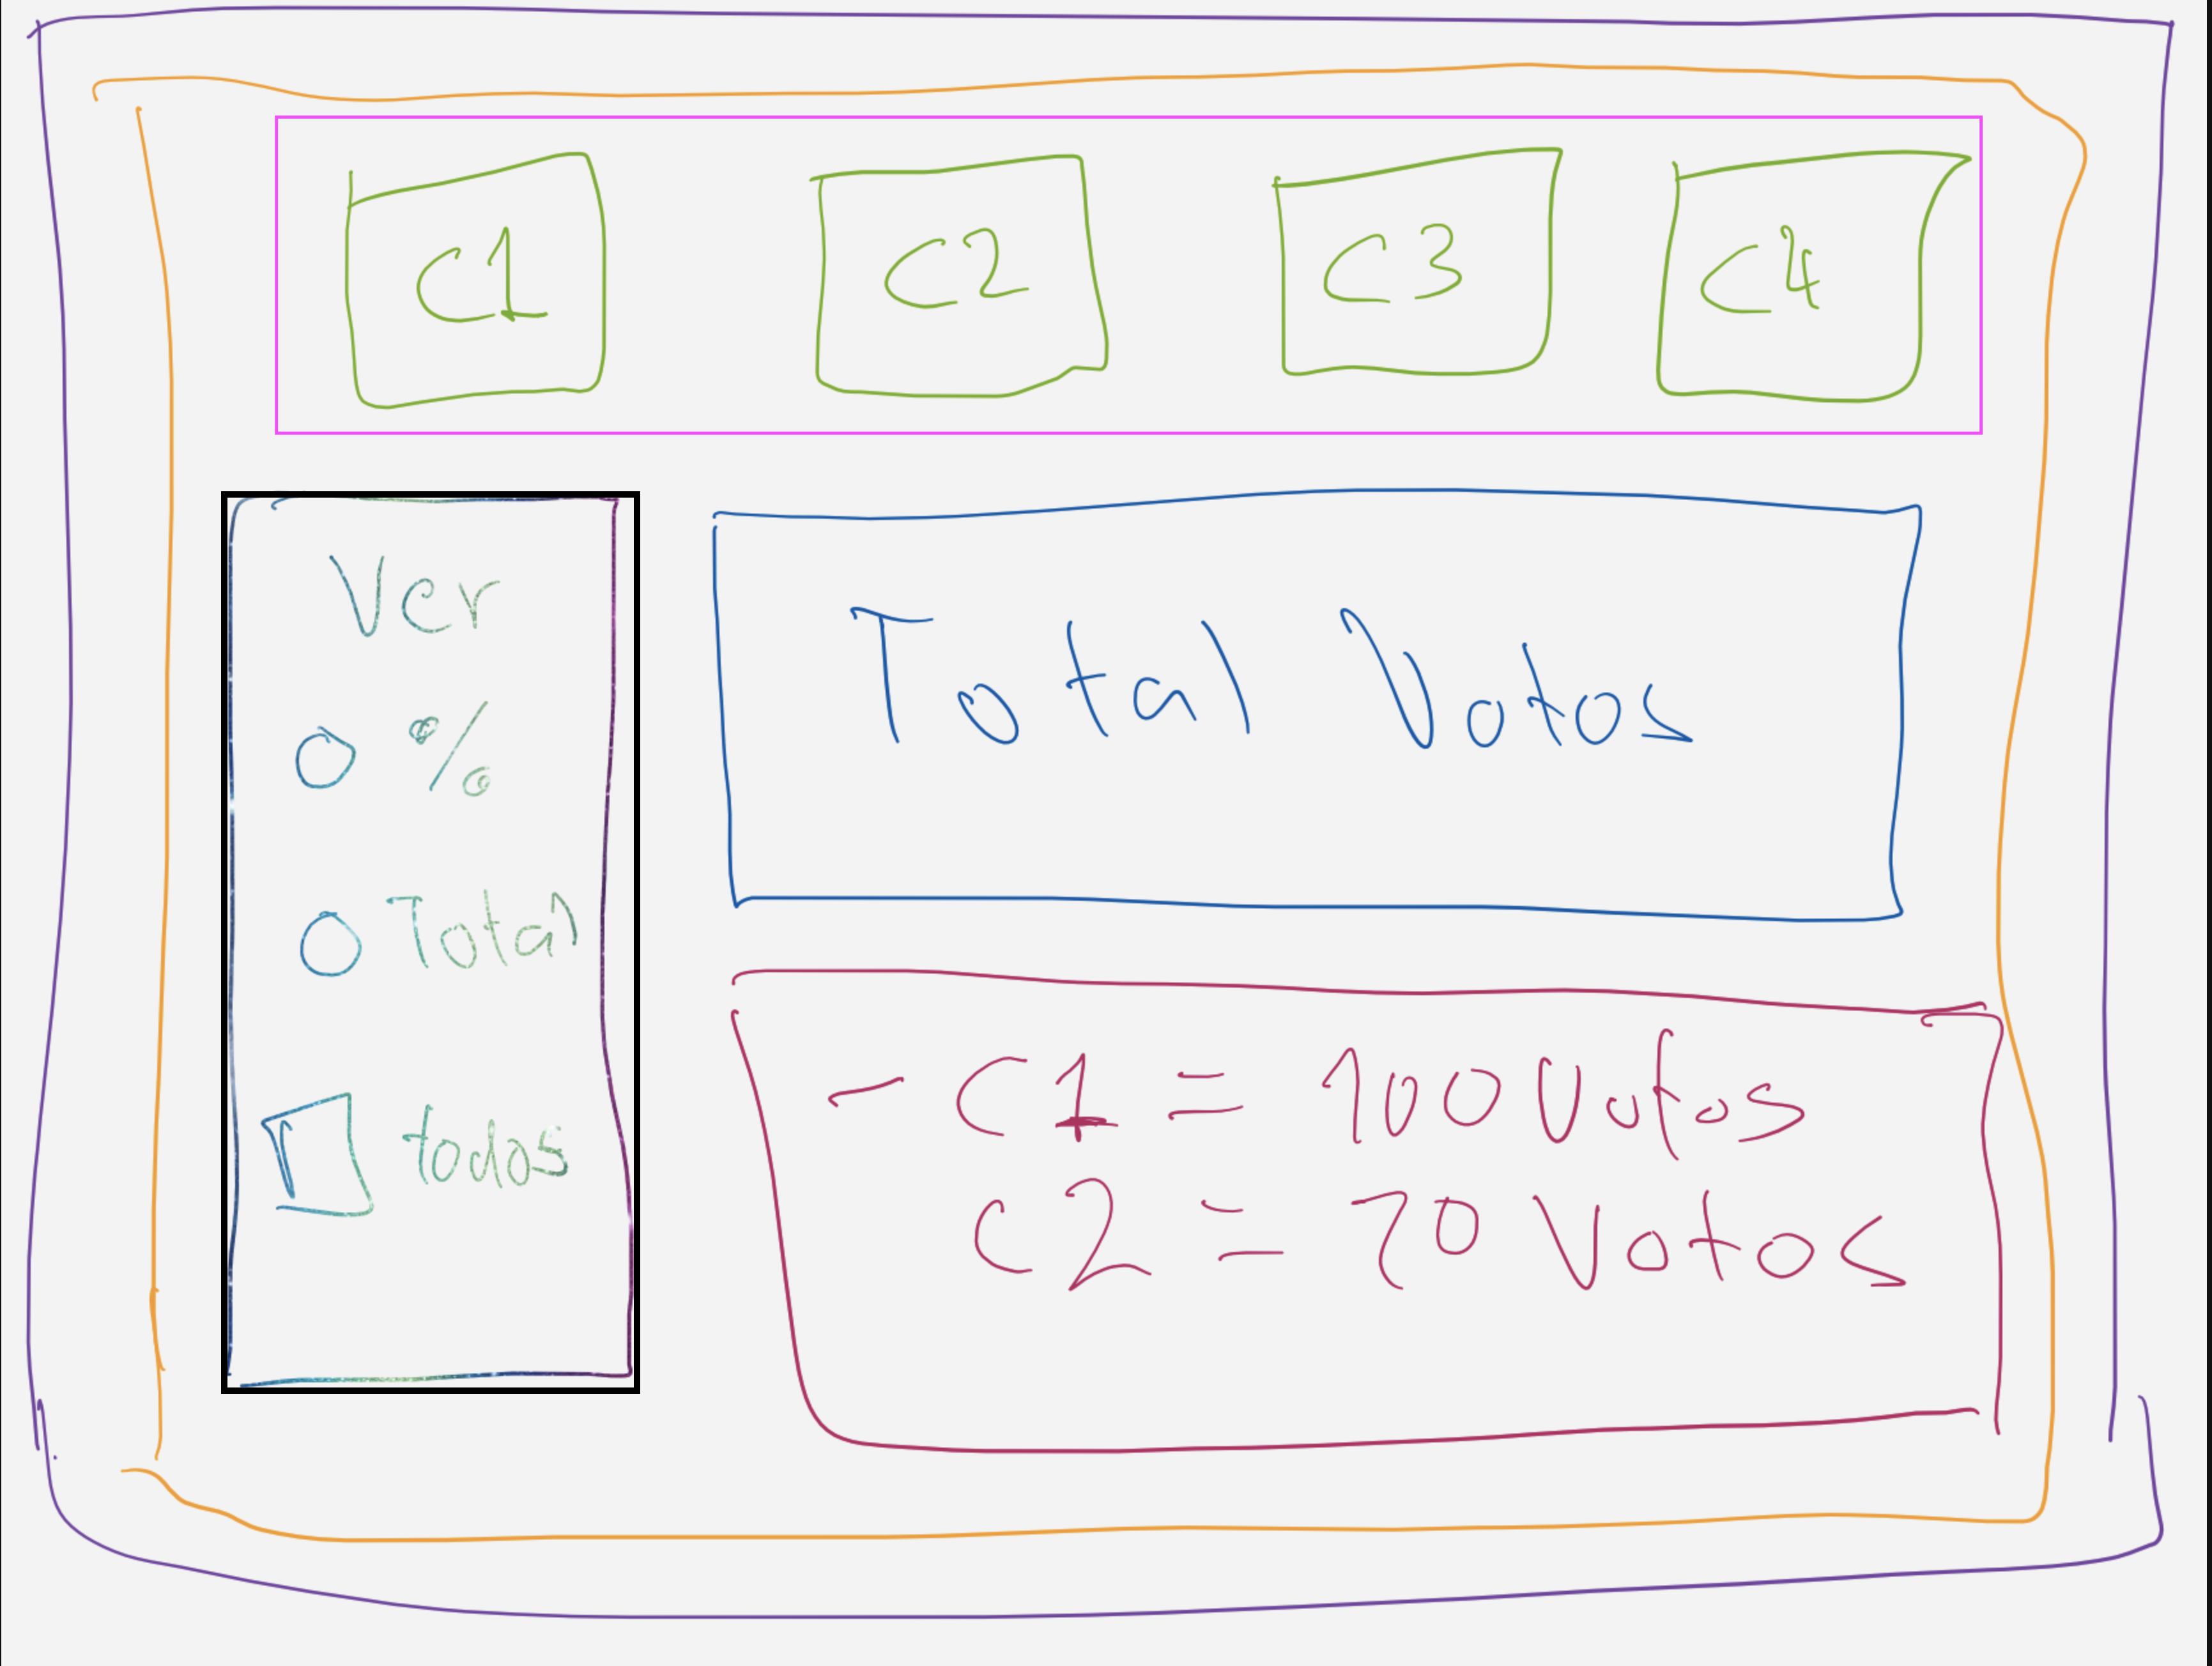 C1 C2 C3 C4
Ver
%
Total
todos
Total Votos
- C1 = 100 Votos
C2 = 70 Votos